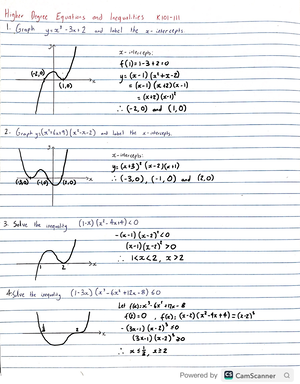 Higher Degree Equations and Inequalities K101-111
1. Graph y=x³-3x+2 and label the x-intercepts
x-intercepts:
f(1)=1-3+2=0
y=(x-1)(x²+x-2)
=(x-1)(x+2)(x-1)
=(x+2)(x-1)²
∴ (-2,0) and (1,0)
(-2,0)
(1,0)
x
2. Graph y=(x²+6x+9)(x²-x-2) and label the x-intercepts.
x-intercepts:
y=(x+3)²(x-2)(x+1)
∴ (-3,0), (-1,0) and (2,0)
(-3,0) (-1,0) (2,0)
x
3. Solve the inequality (1-x)(x²-4x+4)<0
-(x-1)(x-2)²<0
(x-1)(x-2)²>0
∴ 1<x<2, x>2
1 2 x
4. Solve the inequality (1-3x)(x³-6x²+12x-8)≤0
Let f(x)=x³-6x²+12x-8
f(2)=0, f(x)=(x-2)(x²-4x+4)=(x-2)³
-(3x-1)(x-2)³≤0
(3x-1)(x-2)³≥0
∴ x≤⅓, x≥2
⅓ 2 x
Powered by CS CamScanner